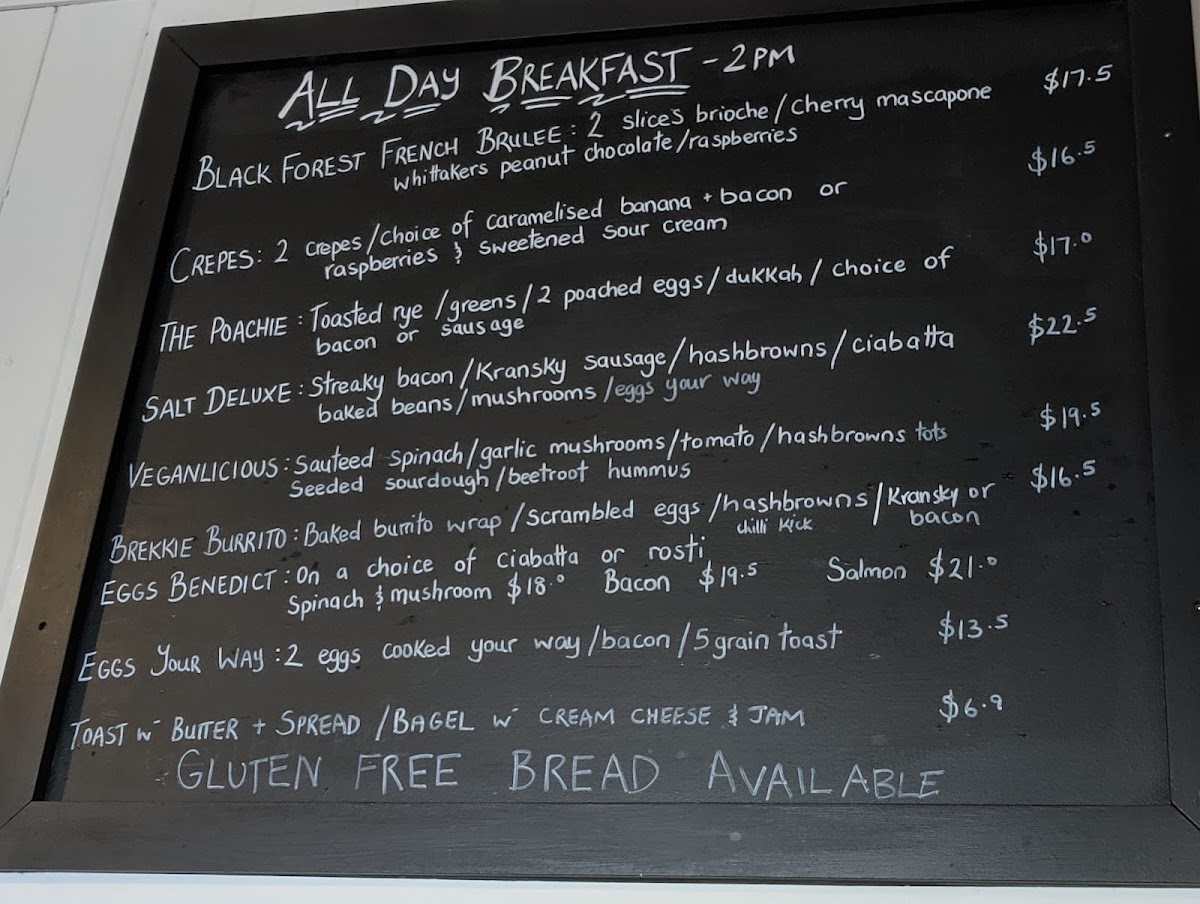 ALL DAY BREAKFAST - 2PM
BLACK FOREST FRENCH BRULEE: 2 slices brioche/cherry mascapone $17.5
whittakers peanut chocolate/raspberries
CREPES: 2 crepes/choice of caramelised banana + bacon or $16.5
raspberries & sweetened sour cream
THE POACHIE: Toasted rye/greens/2 poached eggs/dukkah/choice of $17.0
bacon or sausage
SALT DELUXE: Streaky bacon/Kransky sausage/hashbrowns/ciabatta $22.5
baked beans/mushrooms/eggs your way
VEGANLICIOUS: Sauteed spinach/garlic mushrooms/tomato/hashbrowns tots $19.5
Seeded sourdough/beetroot hummus
BREKKIE BURRITO: Baked burrito wrap/Scrambled eggs/hashbrowns/Kransky or $16.5
chilli kick bacon
EGGS BENEDICT: On a choice of ciabatta or rosti
Spinach & mushroom $18.0 Bacon $19.5 Salmon $21.0
EGGS YOUR WAY: 2 eggs cooked your way/bacon/5 grain toast $13.5
TOAST w- BUTTER + SPREAD/BAGEL w- CREAM CHEESE & JAM $6.9
GLUTEN FREE BREAD AVAILABLE